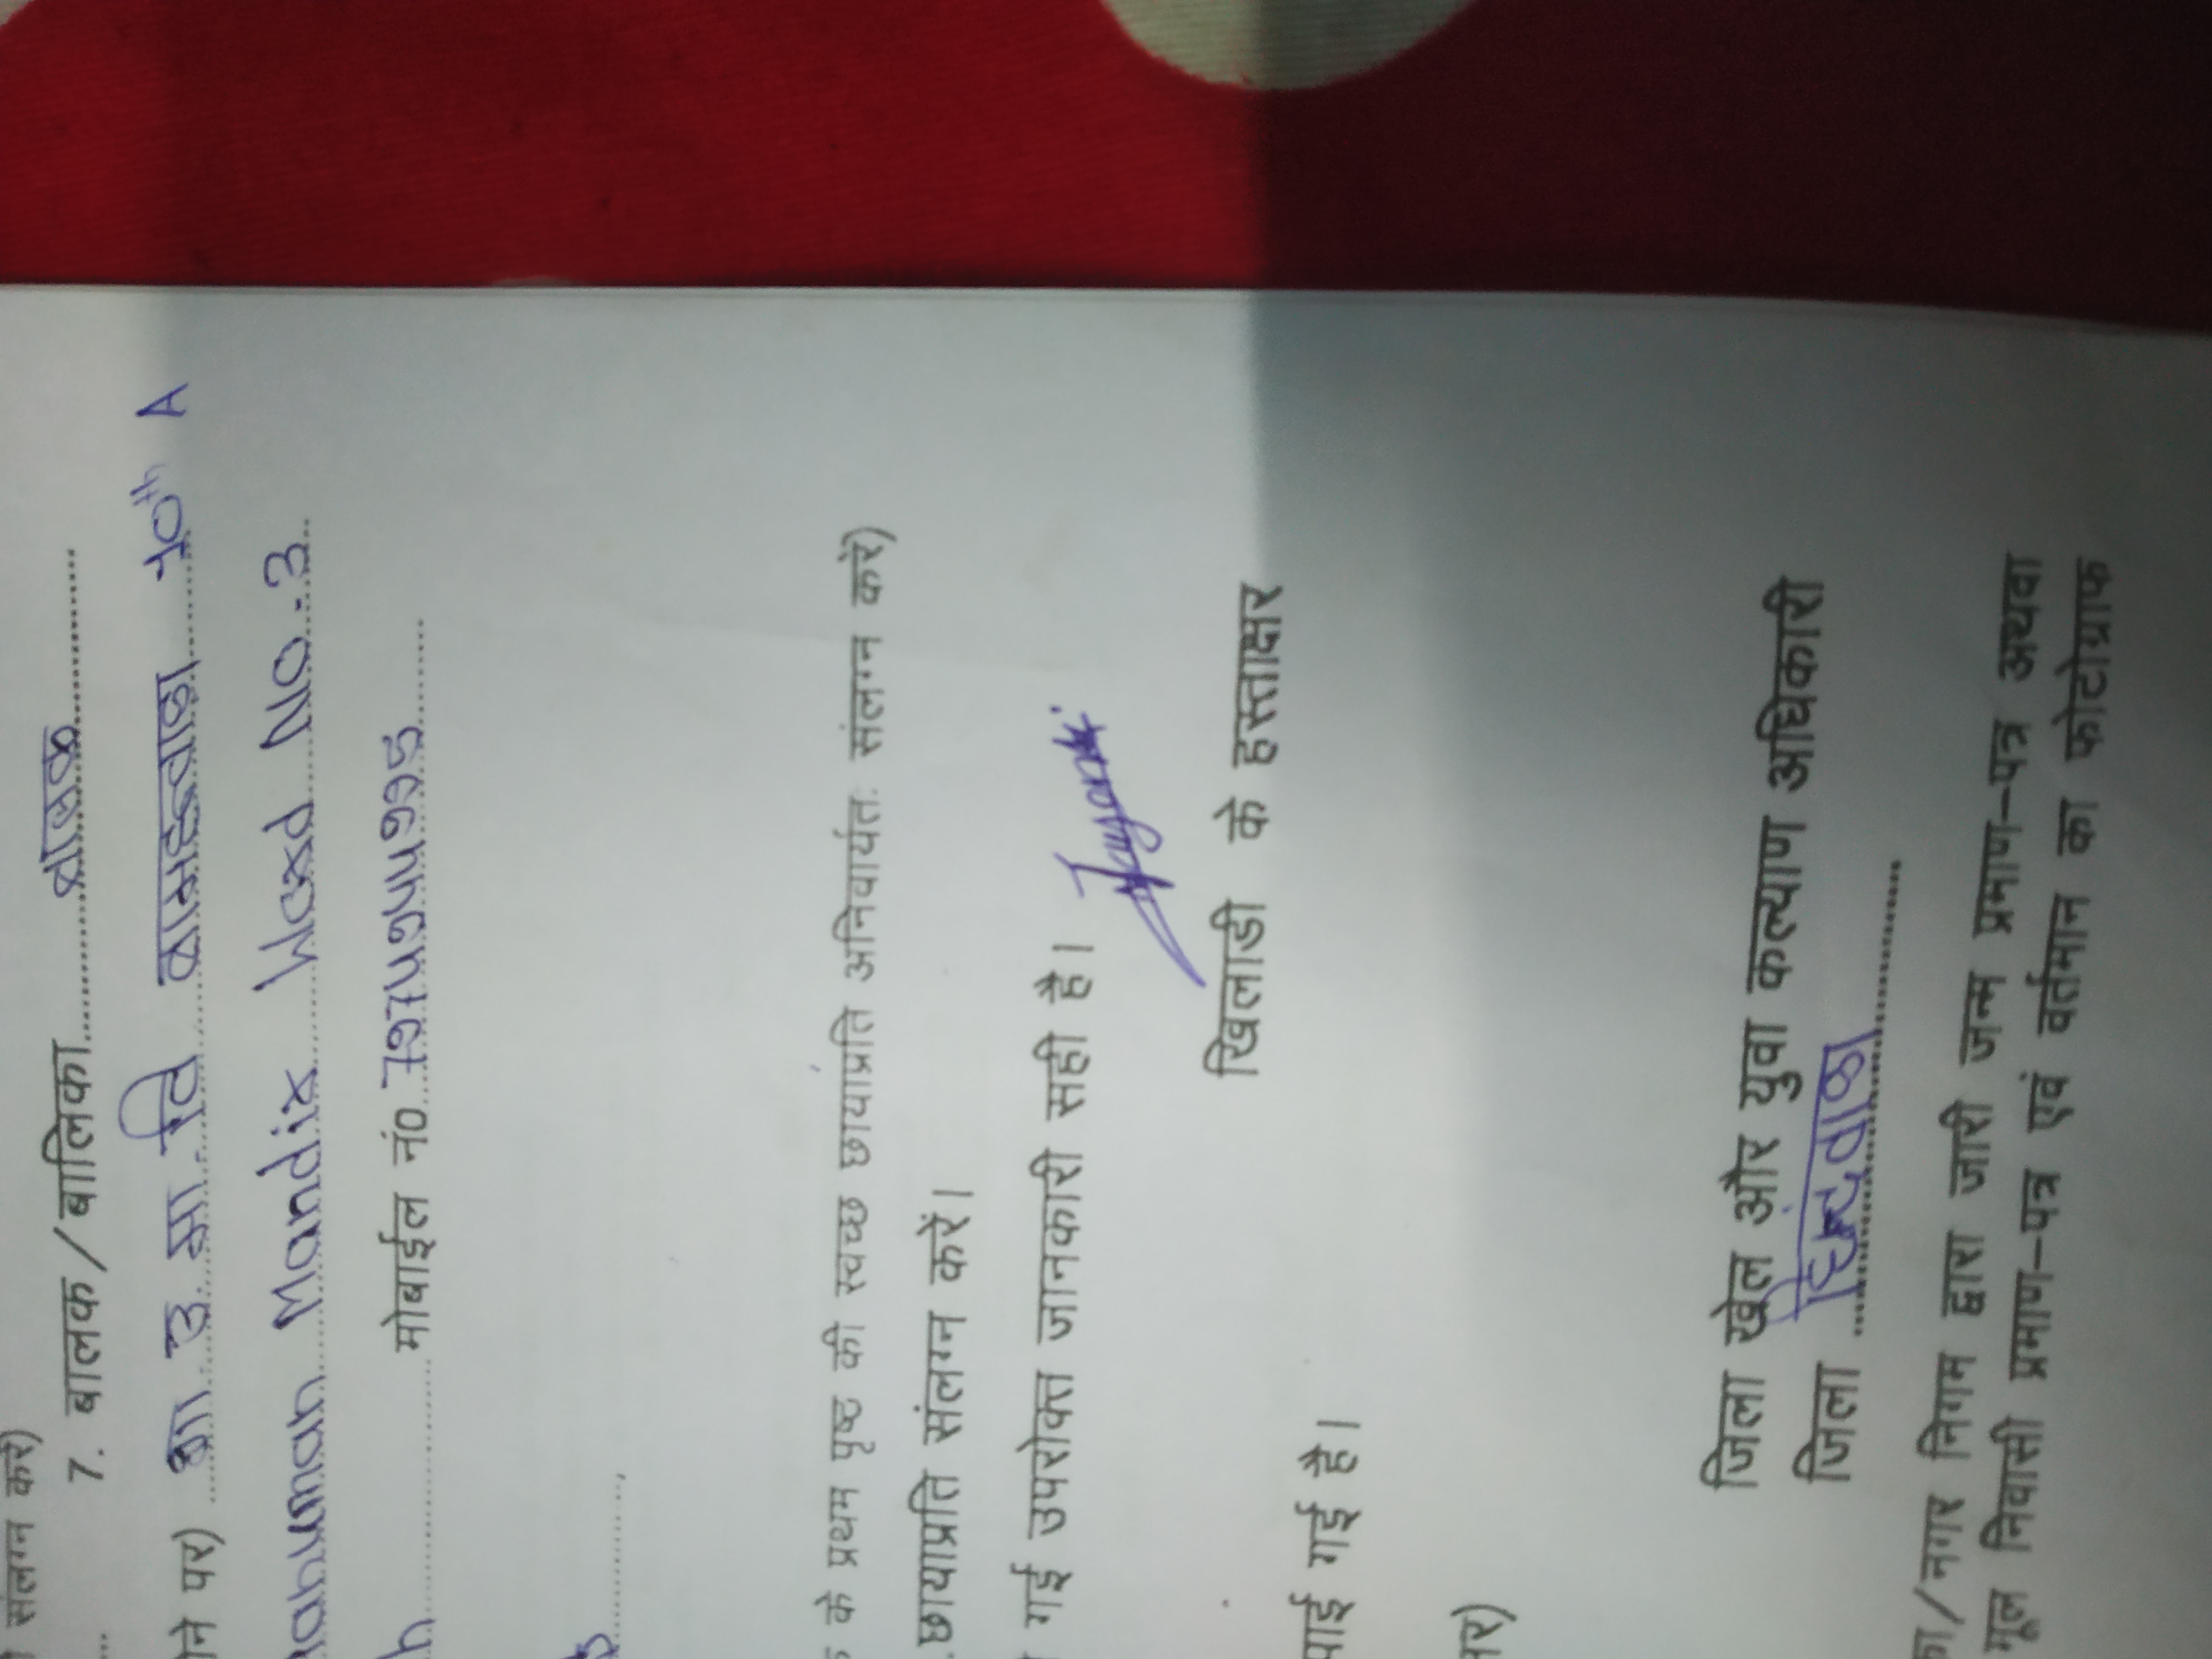 संलग्न करे)
7. बालक/बालिका बालक
पर) शा. उ. मा. वि बामहनवाड़ा 10th A
Mandir Ward No. 3
मोबाईल नं0
के प्रथम पृष्ठ की स्वच्छ छायाप्रति अनिवार्यतः संलग्न करे)
छायाप्रति संलग्न करें।
गई उपरोक्त जानकारी सही है।
खिलाडी के हस्ताक्षर
गई है।
जिला खेल और युवा कल्याण अधिकारी
जिला
/नगर निगम द्वारा जारी जन्म प्रमाण–पत्र अथवा
मूल निवासी प्रमाण–पत्र एवं वर्तमान का फोटोग्राफ